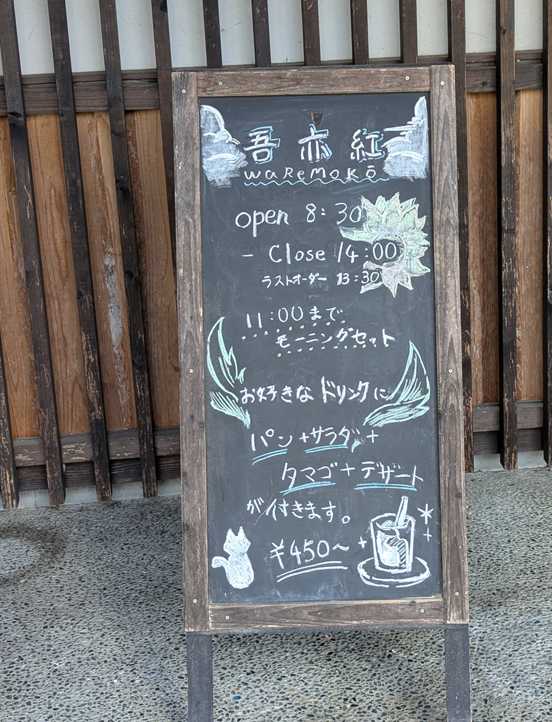 吾亦紅
waRemoKō
open 8:30
- Close 14:00
ラストオーダー 13:30
11:00まで
モーニングセット
お好きなドリンクに
パン+サラダ+
タマゴ+デザート
が付きます。
¥450~